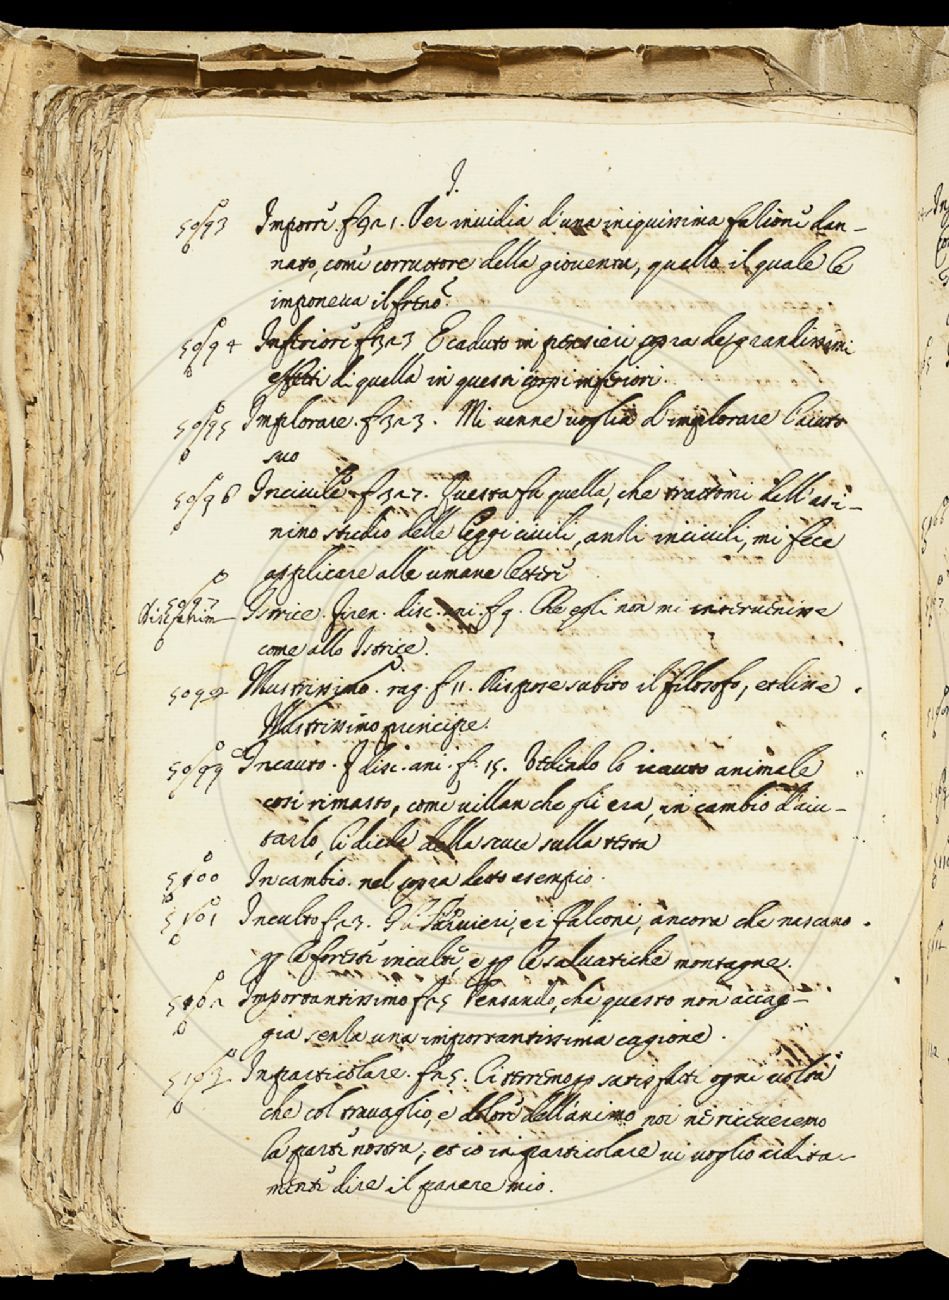 I.
5093 Imporre f 321. Per invidia d'una iniquissima fazione dan-
nato, come corruttore della gioventu, quello il quale le
imponeua il freno.
5094 Inferiore f 323 E caduto in pensieri sopra de grandissimi
effetti di quella in questi corpi inferiori.
5095 Implorare. f 323. Mi venne voglia d'implorare l'aiuto
suo
5096 Incivile. f 327. Questa fu quella, che trattomi dell'asi-
nino studio delle leggi civili, anzi incivili, mi fece
applicare alle umane lettere
5097 Istrice. Firen. disc. ani. f 9. Che egli non mi intervenisse
come allo Istrice.
5098 Illustrissimo. rag. f 11. Rispose subito il filosofo, et disse
Illustrissimo principe.
5099 Incauto. disc. ani. f. 15. Vedendo lo icauto animale
cosi rimasto, come villan che gli era, in cambio d'aiu-
tarlo, li diede della scure sulla testa
5100 In cambio. nel sopra detto esempio.
5101 Inculto f 23. Gli Sparvieri, e i falconi, ancora che nascano
p le foreste inculte, e p le salvatiche montagne.
5102 Importantissimo f 25 Pensando, che questo non accag-
gia senza una importantissima cagione.
5103 In particolare. f 25. Ci terremo p satisfatti ogni volta
che col travaglio, e dolore dell'animo noi ne riceveremo
la parte nostra, et io in particolare vi voglio
dire il parere mio.